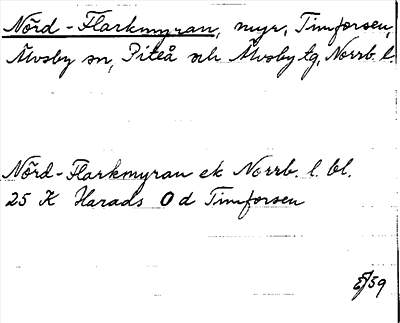 Nörd-Flarkmyran, myr, Timforsen,
Älvsby sn, Piteå och Älvsby tg, Norrb. l.
Nörd-Flarkmyran ek Norrb. l. bl.
25 K Harads O d Timforsen
59